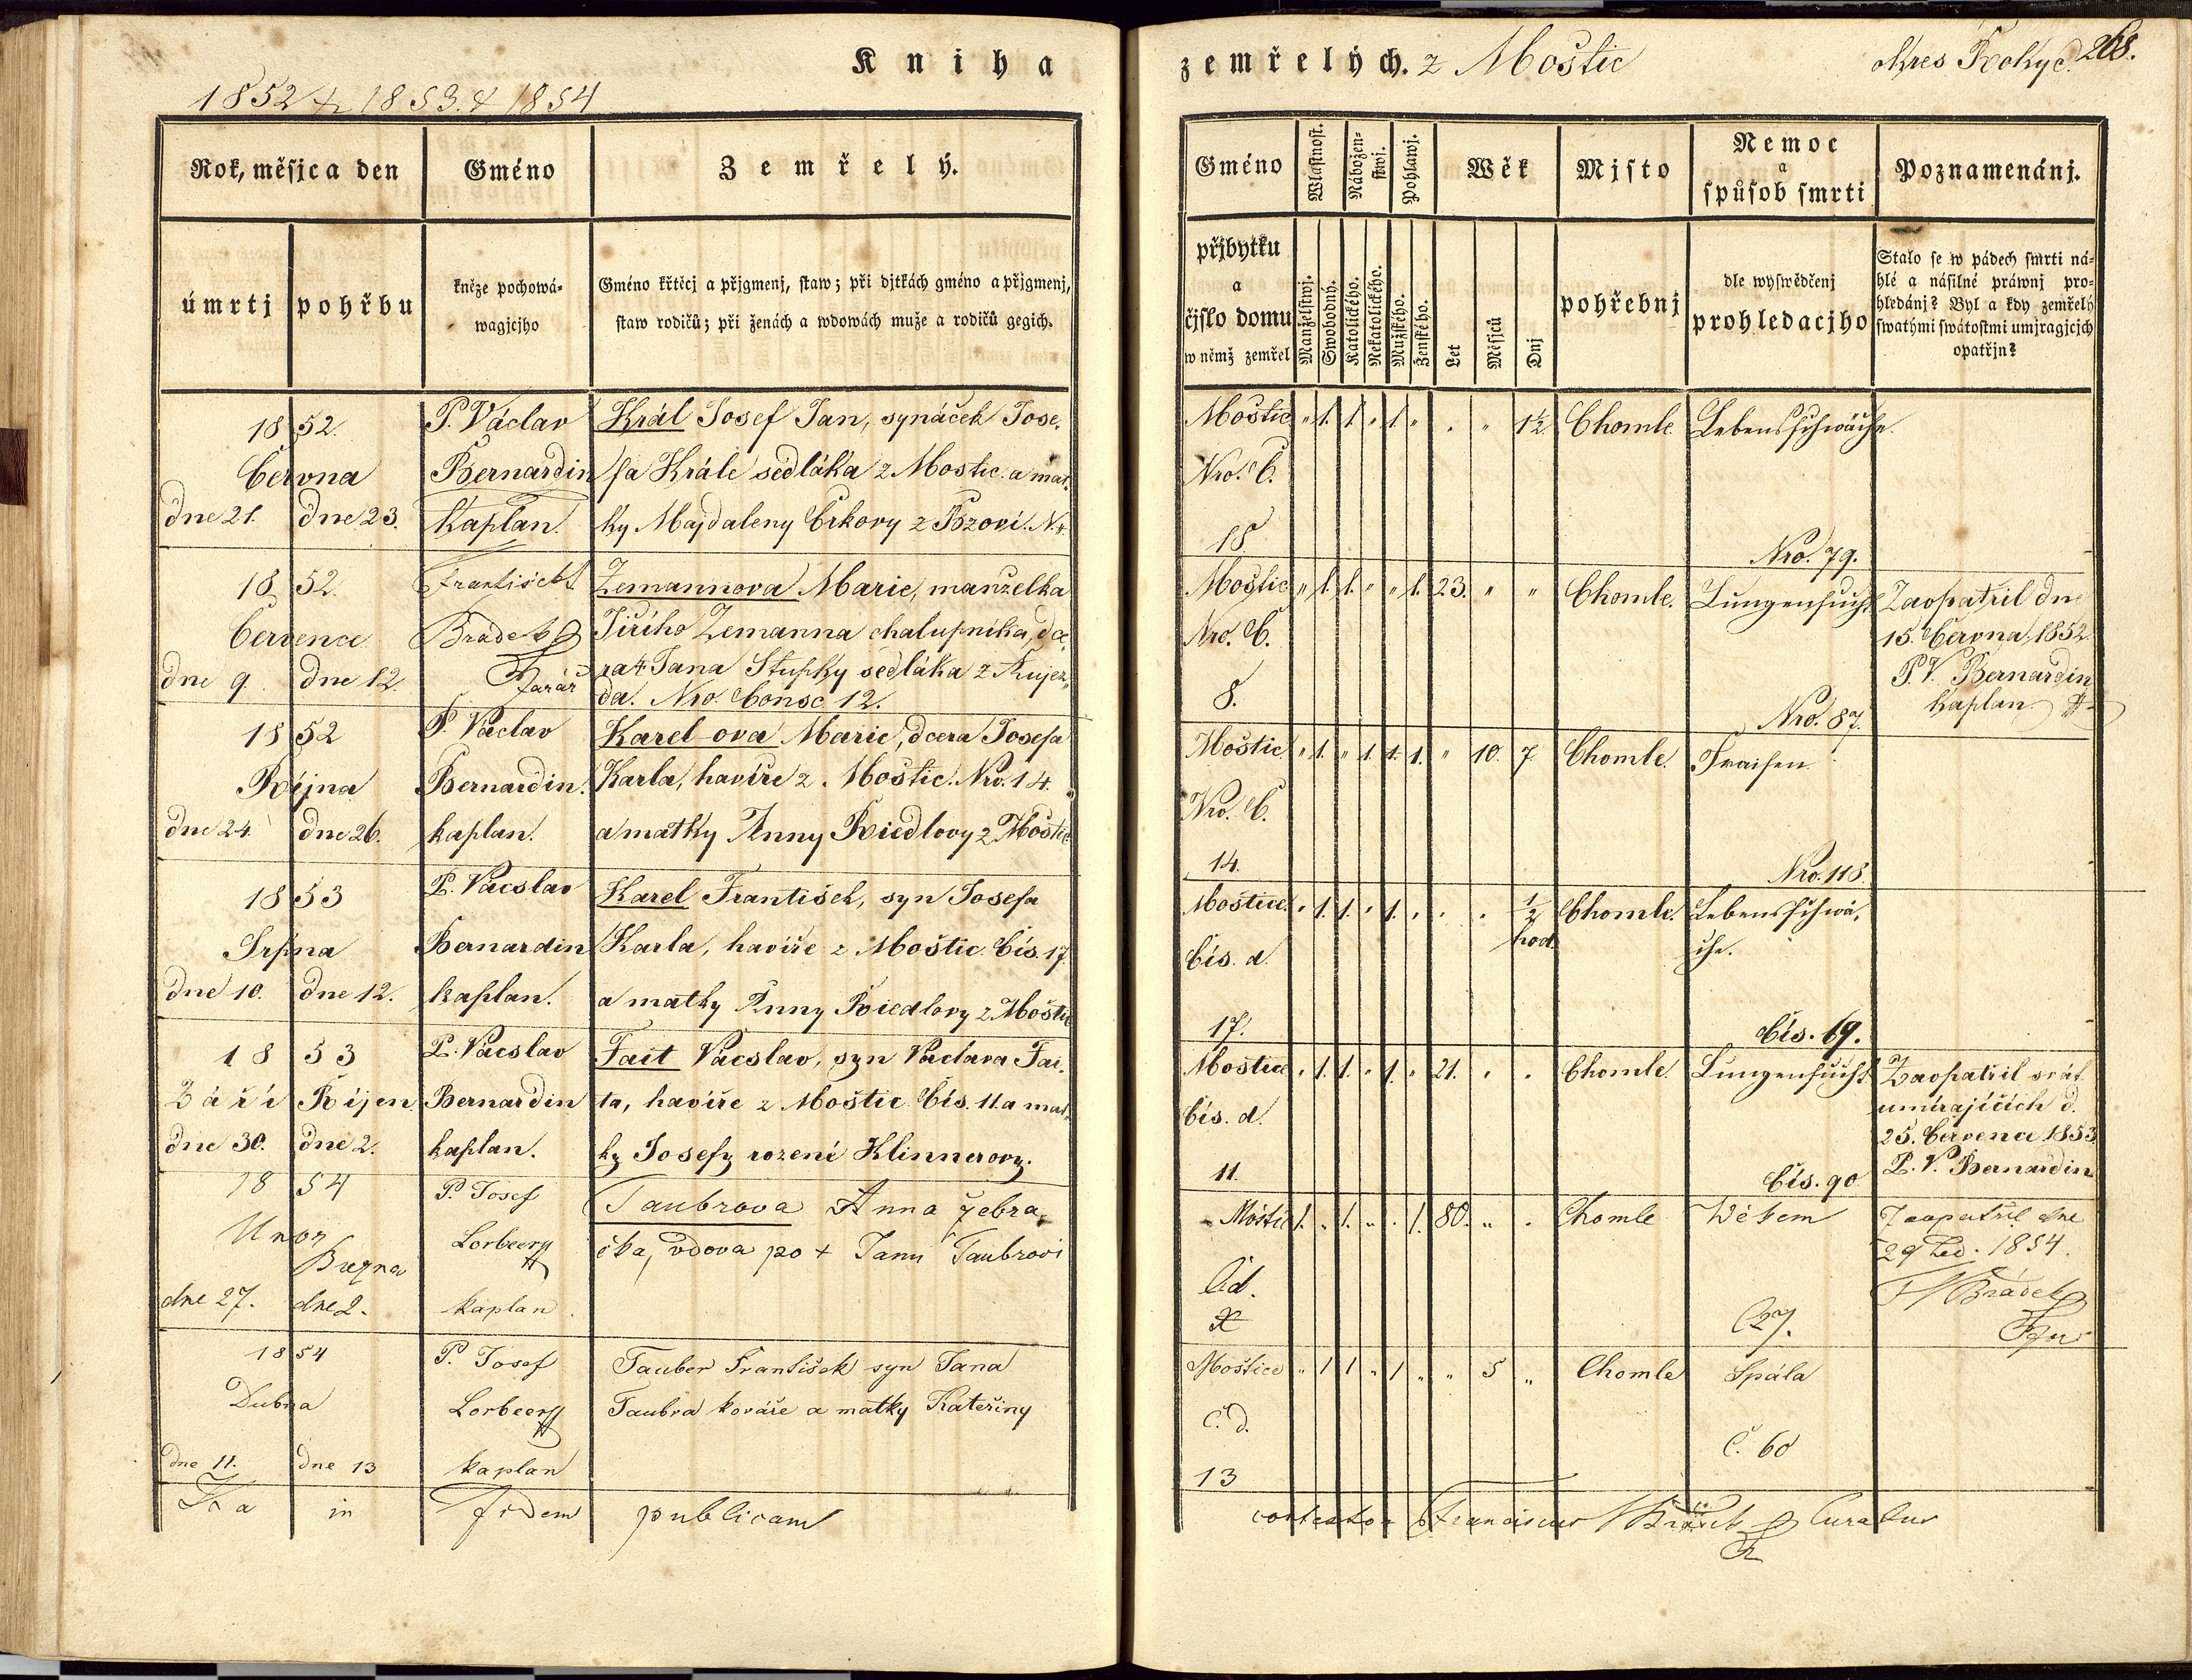 Kniha
1852 & 1853. & 1854
Rok, měsjc a den
Gméno
Zemřelý.
úmrtj
pohřbu
kněze pochowá-
wagjcjho
Gméno křtěcj a přjgmenj, staw; při djtkách gméno a přjgmenj,
staw rodičů; při ženách a wdowách muže a rodičů gegich.
1852.
Června
dne 21.
dne 23.
P. Václav
Bernardin
Kaplan.
Král Josef Jan, synáček Jose-
fa Krále sedláka z Mostic. a mat-
ky Majdaleny Crkovy z
1852.
Července
dne 9.
dne 12.
František
Bradek
Farář
Zemannova Marie, manželka
Jiřiho Zemanna chalupníka, dce-
ra + Jana Stupky sedláka z Kujez-
da. Nro. Consc. 12.
1852
Října
dne 24.
dne 26.
P. Václav
Bernardin.
kaplan.
Karel-ova Marie, dcera Josefa
Karla, havíře z Moštic. Nro. 14.
a matky Anny Riedlovy z Moštic
1853
Srpna
dne 10.
dne 12.
P. Vácslav
Bernardin
kaplan.
Karel František, syn Josefa
Karla, havíře z Moštic. Čís. 17.
a matky Anny Riedlovy z Moštic
1853
Září
Říjen
dne 30.
dne 2.
P. Vácslav
Bernardin
kaplan.
Fait Vácslav, syn Václava Fai-
ta, havíře z Moštic. Čís. 11. a mat-
ky Josefy rozené Klinnerovy.
1854
Unor
Března
dne 27.
dne 2.
P. Josef
Lorbeer
kaplan
Taubrova Anna žebra-
čka, vdova po + Janu Taubrovi
1854
Dubna
dne 11.
dne 13
P. Josef
Lorbeer
kaplan
Tauber František syn Jana
Taubra kováře a matky Kateřiny
Ita in fidem publicam
zemřelých. z Moštic
okres Rokyc.
268.
Gméno
Wlastnost.
Nábožen-
stwj.
Pohlawj.
Wěk
Mjsto
Nemoc
a
spůsob smrti
Poznamenánj.
přjbytku
a
čjslo domu
w němž zemřel
Manželstwj.
Swobodný.
Katolického.
Nekatolického.
Mužského.
Ženského.
Let
Měsjců
Dnj
pohřebnj
dle wyswědčenj
prohledacjho
Stalo se w pádech smrti ná-
hlé a násilné práwnj pro-
hledánj? Byl a kdy zemřelý
swatými swátostmi umjragjcjch
opatřjn?
Moštic " 1. 1. " 1. " " " 1½ Chomle. Lebensschwäche.
Nro. C.
18
Nro. 79.
Moštic " 1. 1. " " 1. 23. " " Chomle. Lungensucht
Nro. C.
8.
Nro. 87.
Zaopatřil dne
15. Června 1852
P. V. Bernardin
Kaplan
Moštic " 1. " 1. 1. 1. " 10. 7 Chomle. Fraisen
Nro. C.
14.
Nro. 118.
Moštice. " 1. 1. " 1. " " " ½ hod. Chomle. Lebensschwä-
che.
čís. d.
17.
čís. 69.
Moštice " 1. 1. " 1. " 21. " " Chomle. Lungensucht.
čís. d.
11.
čís. 90
Zaopatřil svát.
umírajících d.
25. Července 1853
P. V. Bernardin
Moštic 1. " 1. " " 1. 80. " " Chomle Wěkem
Čd.
Č 27.
Zaopatřil dne
29 Led. 1854.
F Bradek
Moštice " 1 1 " 1 " " 5 " Chomle Spála
Č. d.
13
Č. 60
contestor Franciscus Bradek Curatus